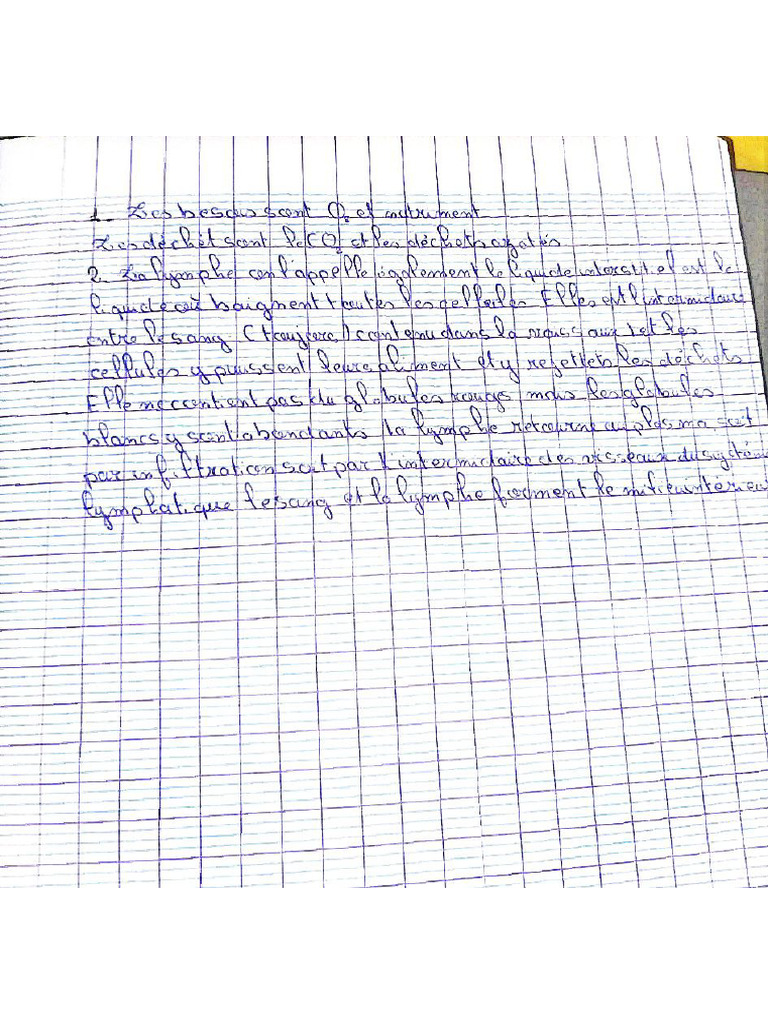 1. Les besous sont O2 et nutrument
Les déchèt sont le CO2 et les déchets azatés
2. La lymphe (on l'appelle également le liquide interstitiel est le
liquide où baignent toutes les cellules Elles est l'intermidaire
entre le sang (toujours) contenu dans la vaissaux et les
cellules y puussent leurs aliment et y rejettets les déchets
Elle ne contient pas du globules rouges mais les globules
blancs y sont abondants la lymphe retourne au plasma soit
par infiltration soit par l'intermidaire des vesseaux du systéme
lymphatique le sang et la lymphe forment le milieu intérieu